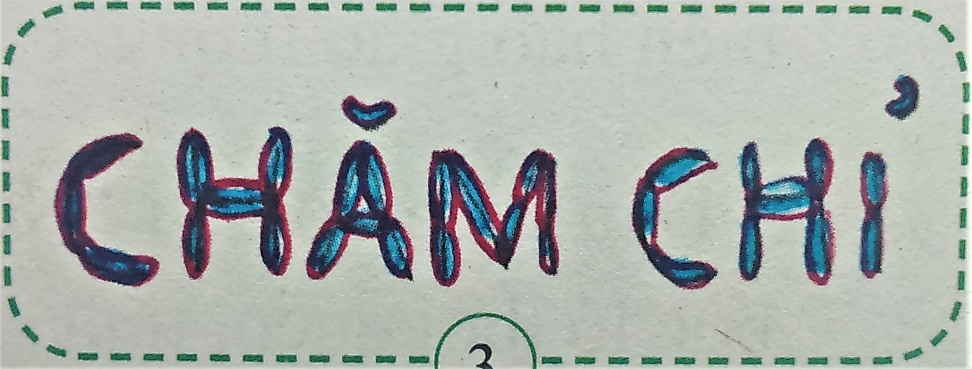 CHĂM CHỈ
3